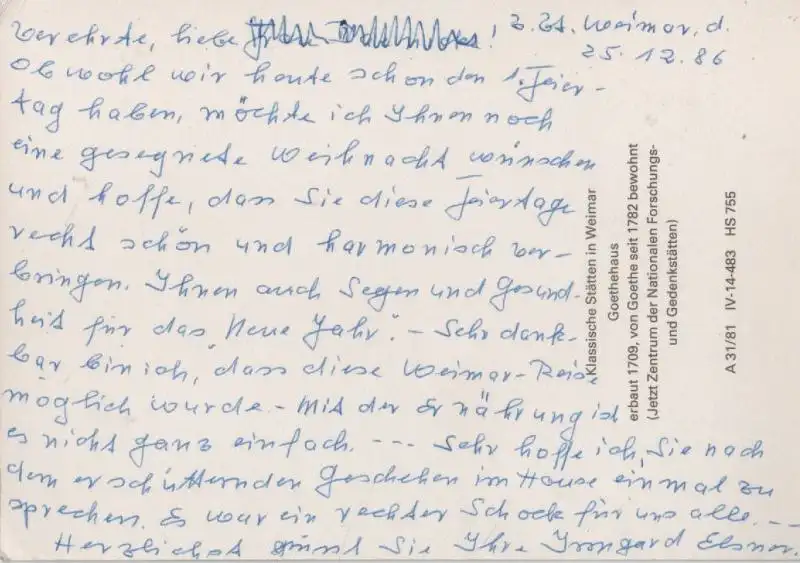 z. Zt. Weimar, d.
25. 12. 86
Verehrte, liebe !
Obwohl wir heute schon den 1. Feier-
tag haben, möchte ich Ihnen noch
eine gesegnete Weihnacht wünschen
und hoffe, dass Sie diese Feiertage
recht schön und harmonisch ver-
bringen. Ihnen auch Segen und Gesund-
heit für das "Neue Jahr". - Sehr dank-
bar bin ich, dass diese Weimar-Reise
möglich wurde. - Mit der Ernährung ist
es nicht ganz einfach. --- Sehr hoffe ich, Sie nach
dem erschütternden Geschehen im Hause einmal zu
sprechen. Es war ein rechter Schock für uns alle. --
Herzlichst grüsst Sie Ihre Irmgard Elsner.
Klassische Stätten in Weimar
Goethehaus
erbaut 1709, von Goethe seit 1782 bewohnt
(Jetzt Zentrum der Nationalen Forschungs-
und Gedenkstätten)
A 31/81 IV-14-483 HS 755